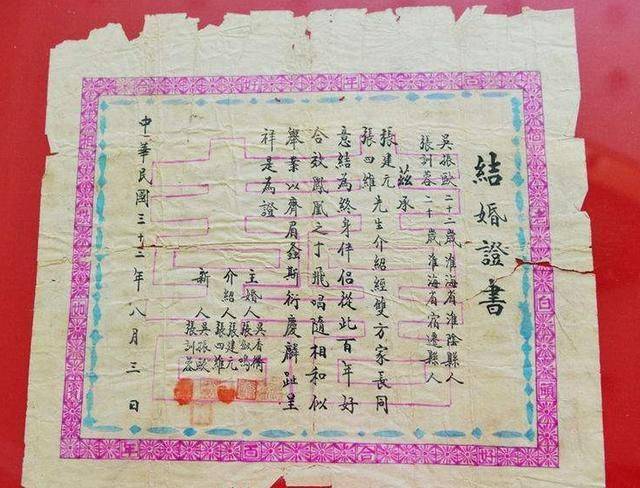 結婚證書
吳振歐二十二歲淮海省淮陰縣人
張訓蓉二十歲淮海省宿遷縣人
茲承
張建元
張四維先生介紹經雙方家長同
意結為終身伴侶從此百年好
合效鳳凰之于飛唱隨相和似
舉案以齊眉螽斯衍慶麟趾呈
祥是為證
主婚人吳香儕
張
介紹人張建元
張四維
新人吳振歐
張訓蓉
中華民國三十三年八月三日